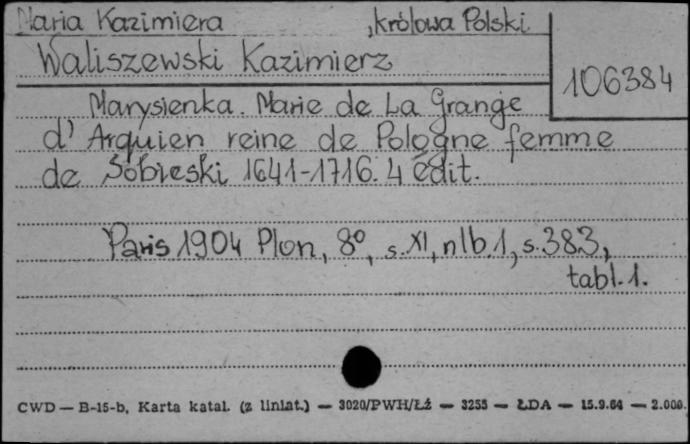 Maria Kazimiera, królowa Polski
Waliszewski Kazimierz
106384
Marysienka. Marie de La Grange
d'Arquien reine de Pologne femme
de Sobieski 1641-1716. 4 édit.
Paris 1904 Plon, 8°, s. XI, nlb. 1, s. 383,
tabl. 1.
CWD — B-15-b, Karta katal. (z liniat.) — 3020/PWH/Łź — 3255 — ŁDA — 15.9.64 — 2.000.